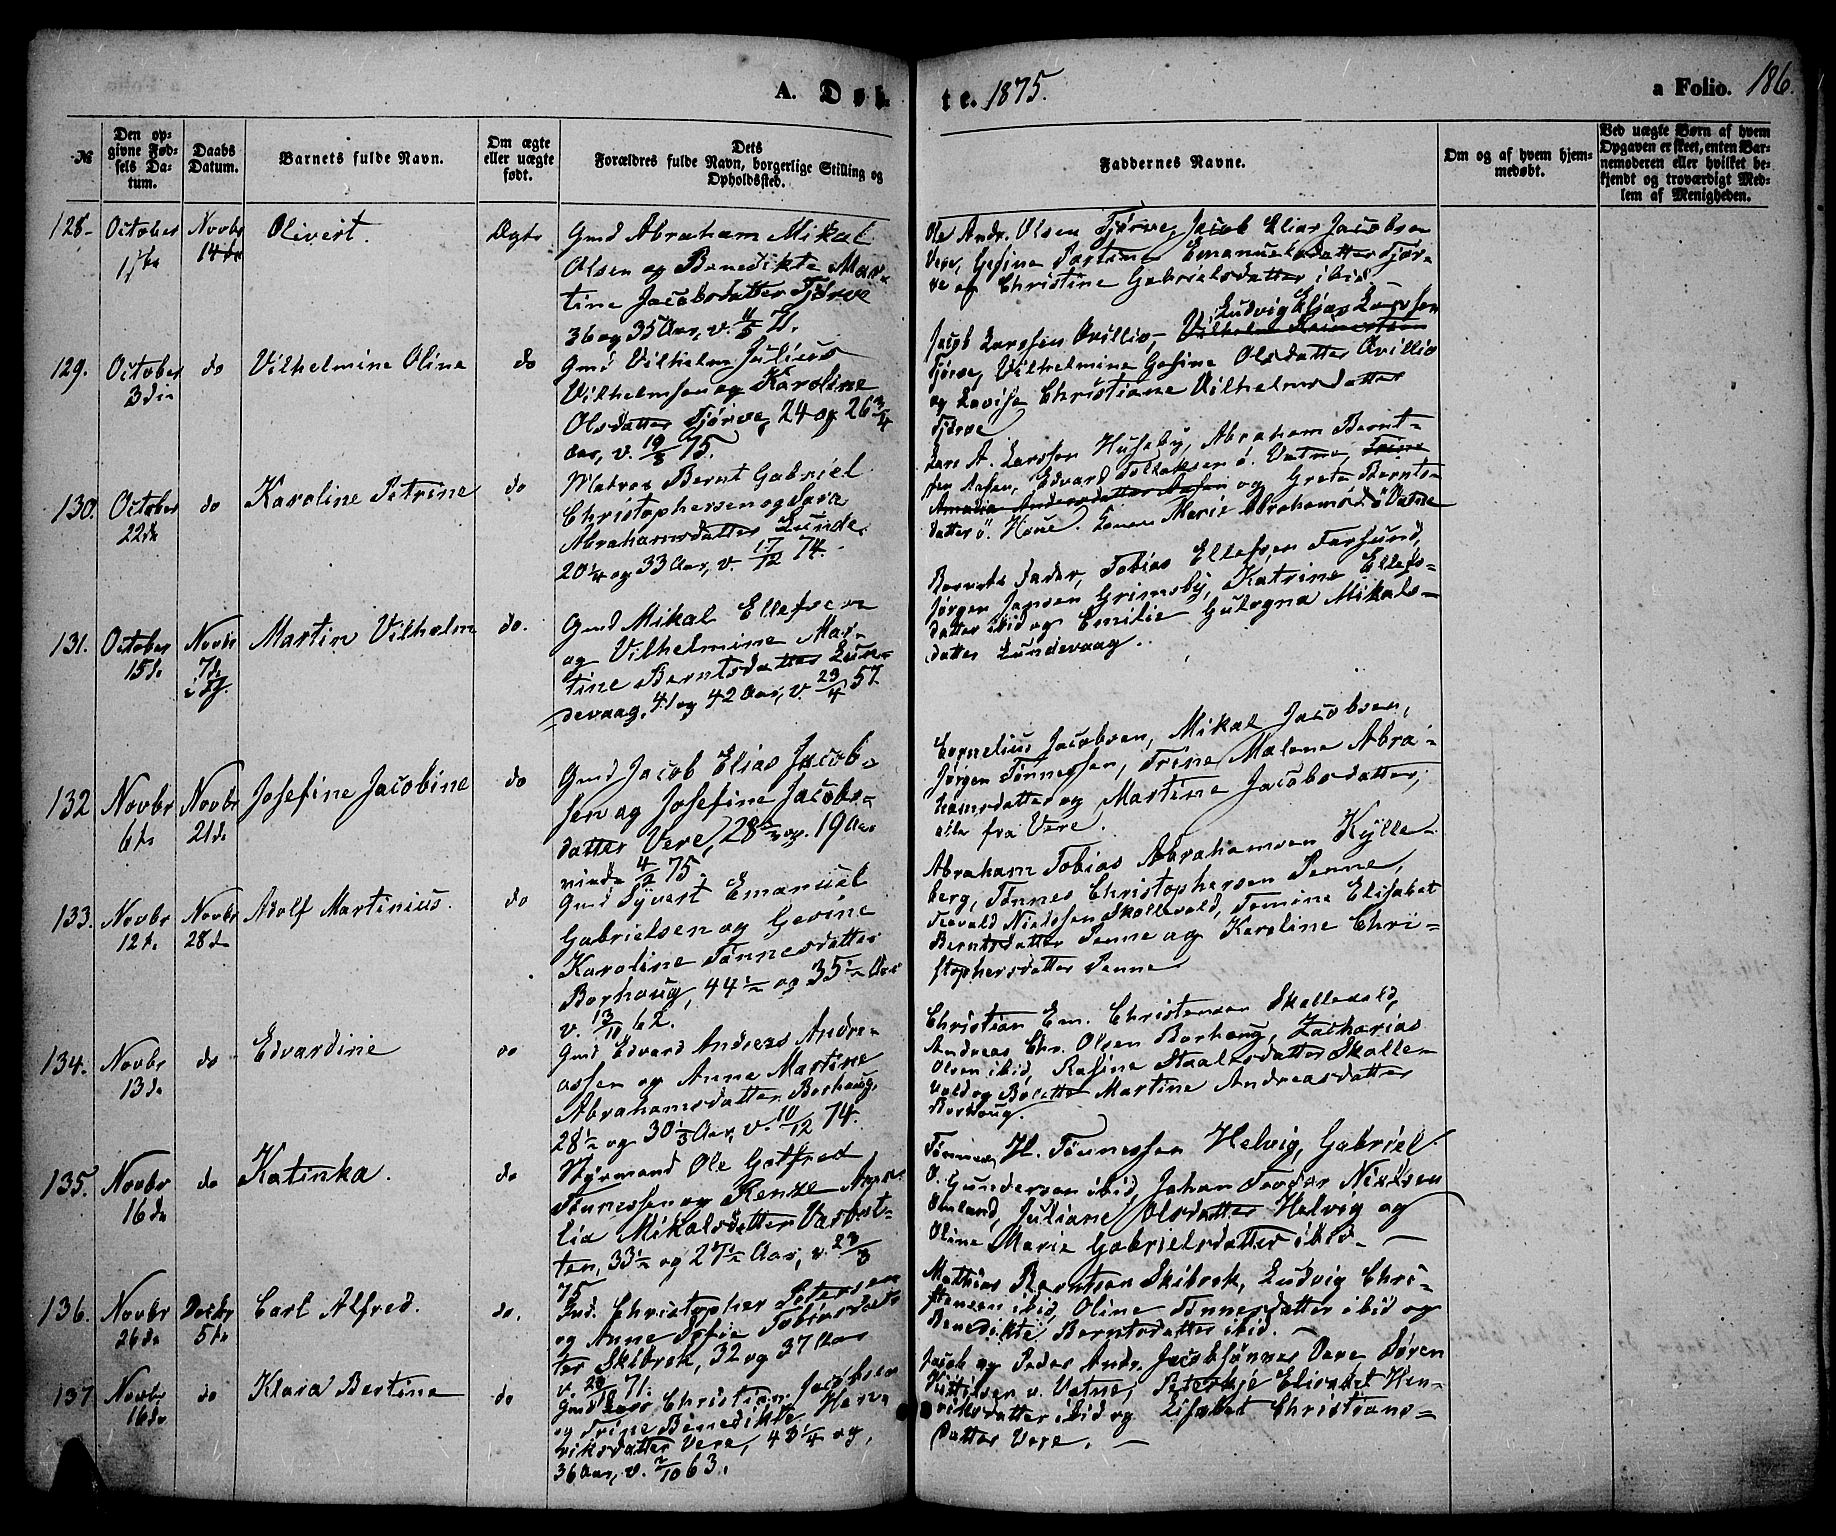 A. Døb-
te. 1875.
a Folio. 186.
№
Den op-
givne Fød-
sels Da-
tum.
Daabs
Datum.
Barnets fulde Navn.
Om ægte
eller uægte
født.
Dets
Forældres fulde Navn, borgerlige Stilling og
Opholdssted.
Faddernes Navne.
Om og af hvem hjem-
medøbt.
Ved uægte Børn af hvem
Opgaven er skeet, enten Bar-
nemoderen eller hvilket be-
kjendt og troværdigt Med-
lem af Menigheden.
128.
October
Novbr
14de
Olivert.
Ægte
Gmd Abraham Mikal
Olsen og Benedikte Mar-
tine Jacobsdatter Tjørve
36 og 35 Aar, v. 71.
Ole Andr. Olsen Tjørve, Jacob Elias Jacobsen
Vere, Gesine Emanuelsdatter Tjør-
ve og Christine Gabrielsdatter ibid.
129.
October
3die
do
Vilhelmine Oline
do
Gmd Vilhelm Julius
Vilhelmsen og Karoline
Olsdatter Tjørve, 24 og 26 3/4
Aar, v. 19/3 75.
Ludvig Elias Larssen
Jacob Larssen Ovillio,
Tjørve, Vilhelmine Gesine Olsdatter Ovillio
og Lovise Christiane Vilhelmsdatter
Tjørve
130.
October
22de
do
Karoline Petrine
do
Matros Bernt Gabriel
Christophersen og Sara
Abrahamsdatter Lunde
20 1/4 og 33 Aar, v. 17/12 74.
Lars A. Larssen Huseby, Abraham Bernt-
sen Aasen, Edvard Tollaksen ö. Vatne, Trine
Amalia Andersdatter Aasen og Grete Bernts-
datter ö. Haue. Marie Abrahamsd. ö Vatne
131.
October
15de
Novbr
7de
Martin Vilhelm
do.
Gmd Mikal Ellefsen
og Vilhelmine Mar-
tine Berntsdatter Lun-
devaag, 41 og 42 Aar, v. 23/4 57
Barnets Fader, Tobias Ellefsen Farsund,
Jørgen Jansen Grimsby, Katrine Ellefs-
datter ibid og Emilie Gurogna Mikals-
datter Lundevaag.
132
Novbr
6te
Novbr
21de
Josefine Jacobine
do
Gmd Jacob Elias Jacob-
sen og Josefine Jacobs-
datter Vere, 28 og 19 Aar
viede 75.
Cornelius Jacobsen, Mikal Jacobsen,
Jørgen Tønnessen, Trine Malene Abra-
hamsdatter og Martine Jacobsdatter,
alle fra Vere.
133.
Novbr
12te
Novbr
28de
Adolf Martinius.
do
Gmd Syvert Emanuel
Gabrielsen og Gevine
Karoline Tönnesdatter
Borhaug, 44 1/2 og 35 1/2 Aar
v. 13/11 62.
Abraham Tobias Abrahamsen Kylle-
berg, Tönnes Christophersen Penne,
Teovald Nielssen Skollevold, Tomine Elisabet
Berntsdatter Penne og Karoline Chri-
stophersdatter Penne
134.
Novbr
13de
do
Edvardine
do
Gmd Edvard Andreas Andre-
assen og Anne Martine
Abrahamsdatter Borhaug
28 1/2 og 30 1/3 Aar, v. 10/12 74.
Christian Em. Christensen Skollevold,
Andreas Chr. Olsen Borhaug, Zacharias
Olsen ibid, Rasine Staalesdatter Skolle-
vold og Bolette Martine Andreasdatter
Borhaug.
135.
Novbr
16de
do
Katinka.
do
Styrmand Ole Gotfred
Tönnessen og Renze Ama-
lia Mikalsdatter Varbust-
ten, 33 1/2 og 27 1/2 Aar, v. 23/3
75
Tönnes H. Tönnessen Helvig, Gabriel
O. Gundersen ibid, Johan Teodor Nielsen
Omland, Juliane Olsdatter Helvig og
Oline Marie Gabrielsdatter ibid. —
136.
Novbr
26de
Decbr
5te
Carl Alfred.
do.
Ind. Christopher Petersen
og Anne Sofie Tobiasdat-
ter Skibrok, 32 og 37 Aar
v. 71.
Mathias Berntsen Skibrok, Ludvig Chri-
stensen ibid, Oline Tönnesdatter ibid og
Benedikte Berntsdatter ibid. —
137
Novbr
16de
do
Klara Bertine
do
Gmd Lars Christian Jacobsen
og Trine Benedikte Hen-
riksdatter Vere, 43 1/4 og
36 Aar, v. 2/10 63.
Jacob og Peder Andr. Jacobsønner Vere Sören
Kittilsen v. Vatne, Elisabet Hen-
riksdatter ibid og Lisabet Christians-
datter Vere. —